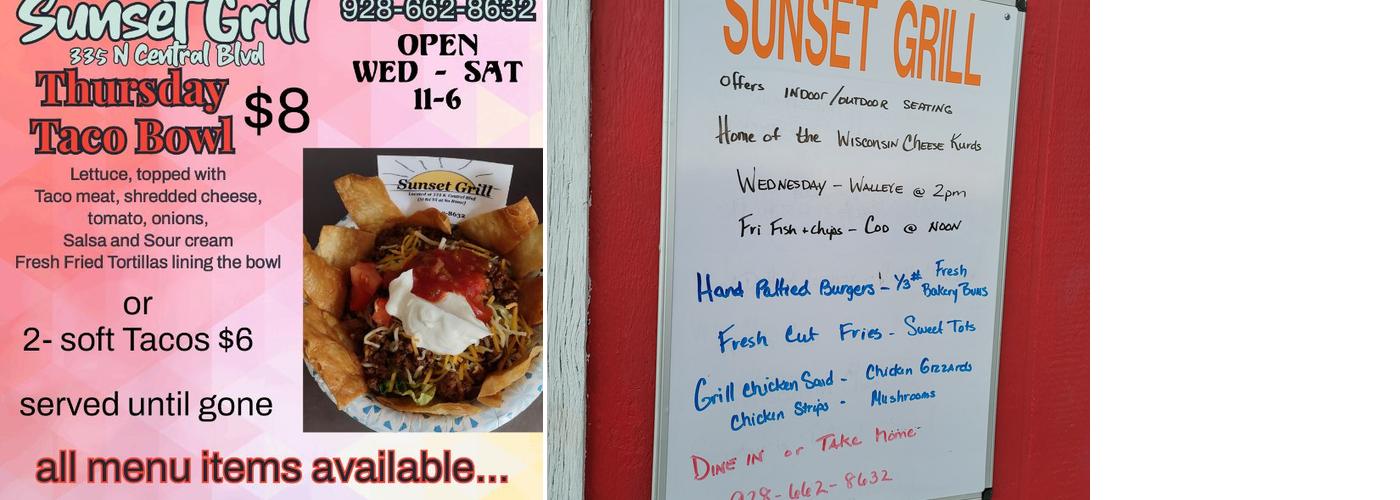 Sunset Grill
335 N Central Blvd
928-662-8632
OPEN
WED - SAT
11-6
Thursday
Taco Bowl
$8
Lettuce, topped with
Taco meat, shredded cheese,
tomato, onions,
Salsa and Sour cream
Fresh Fried Tortillas lining the bowl
or
2- soft Tacos $6
served until gone
all menu items available...
Sunset Grill
Located at 335 N Central Blvd
-8632
SUNSET GRILL
Offers INDOOR/OUTDOOR SEATING
Home of the WISCONSIN CHEESE Kurds
WEDNESDAY - WALLEYE @ 2pm
Fri Fish + chips - COD @ NOON
Hand Pattied Burgers - 1/3# Fresh Bakery Buns
Fresh Cut Fries - Sweet Tots
Grill Chicken Sand - Chicken Gizzards
Chicken Strips - Mushrooms
DINE IN or TAKE Home
928-662-8632